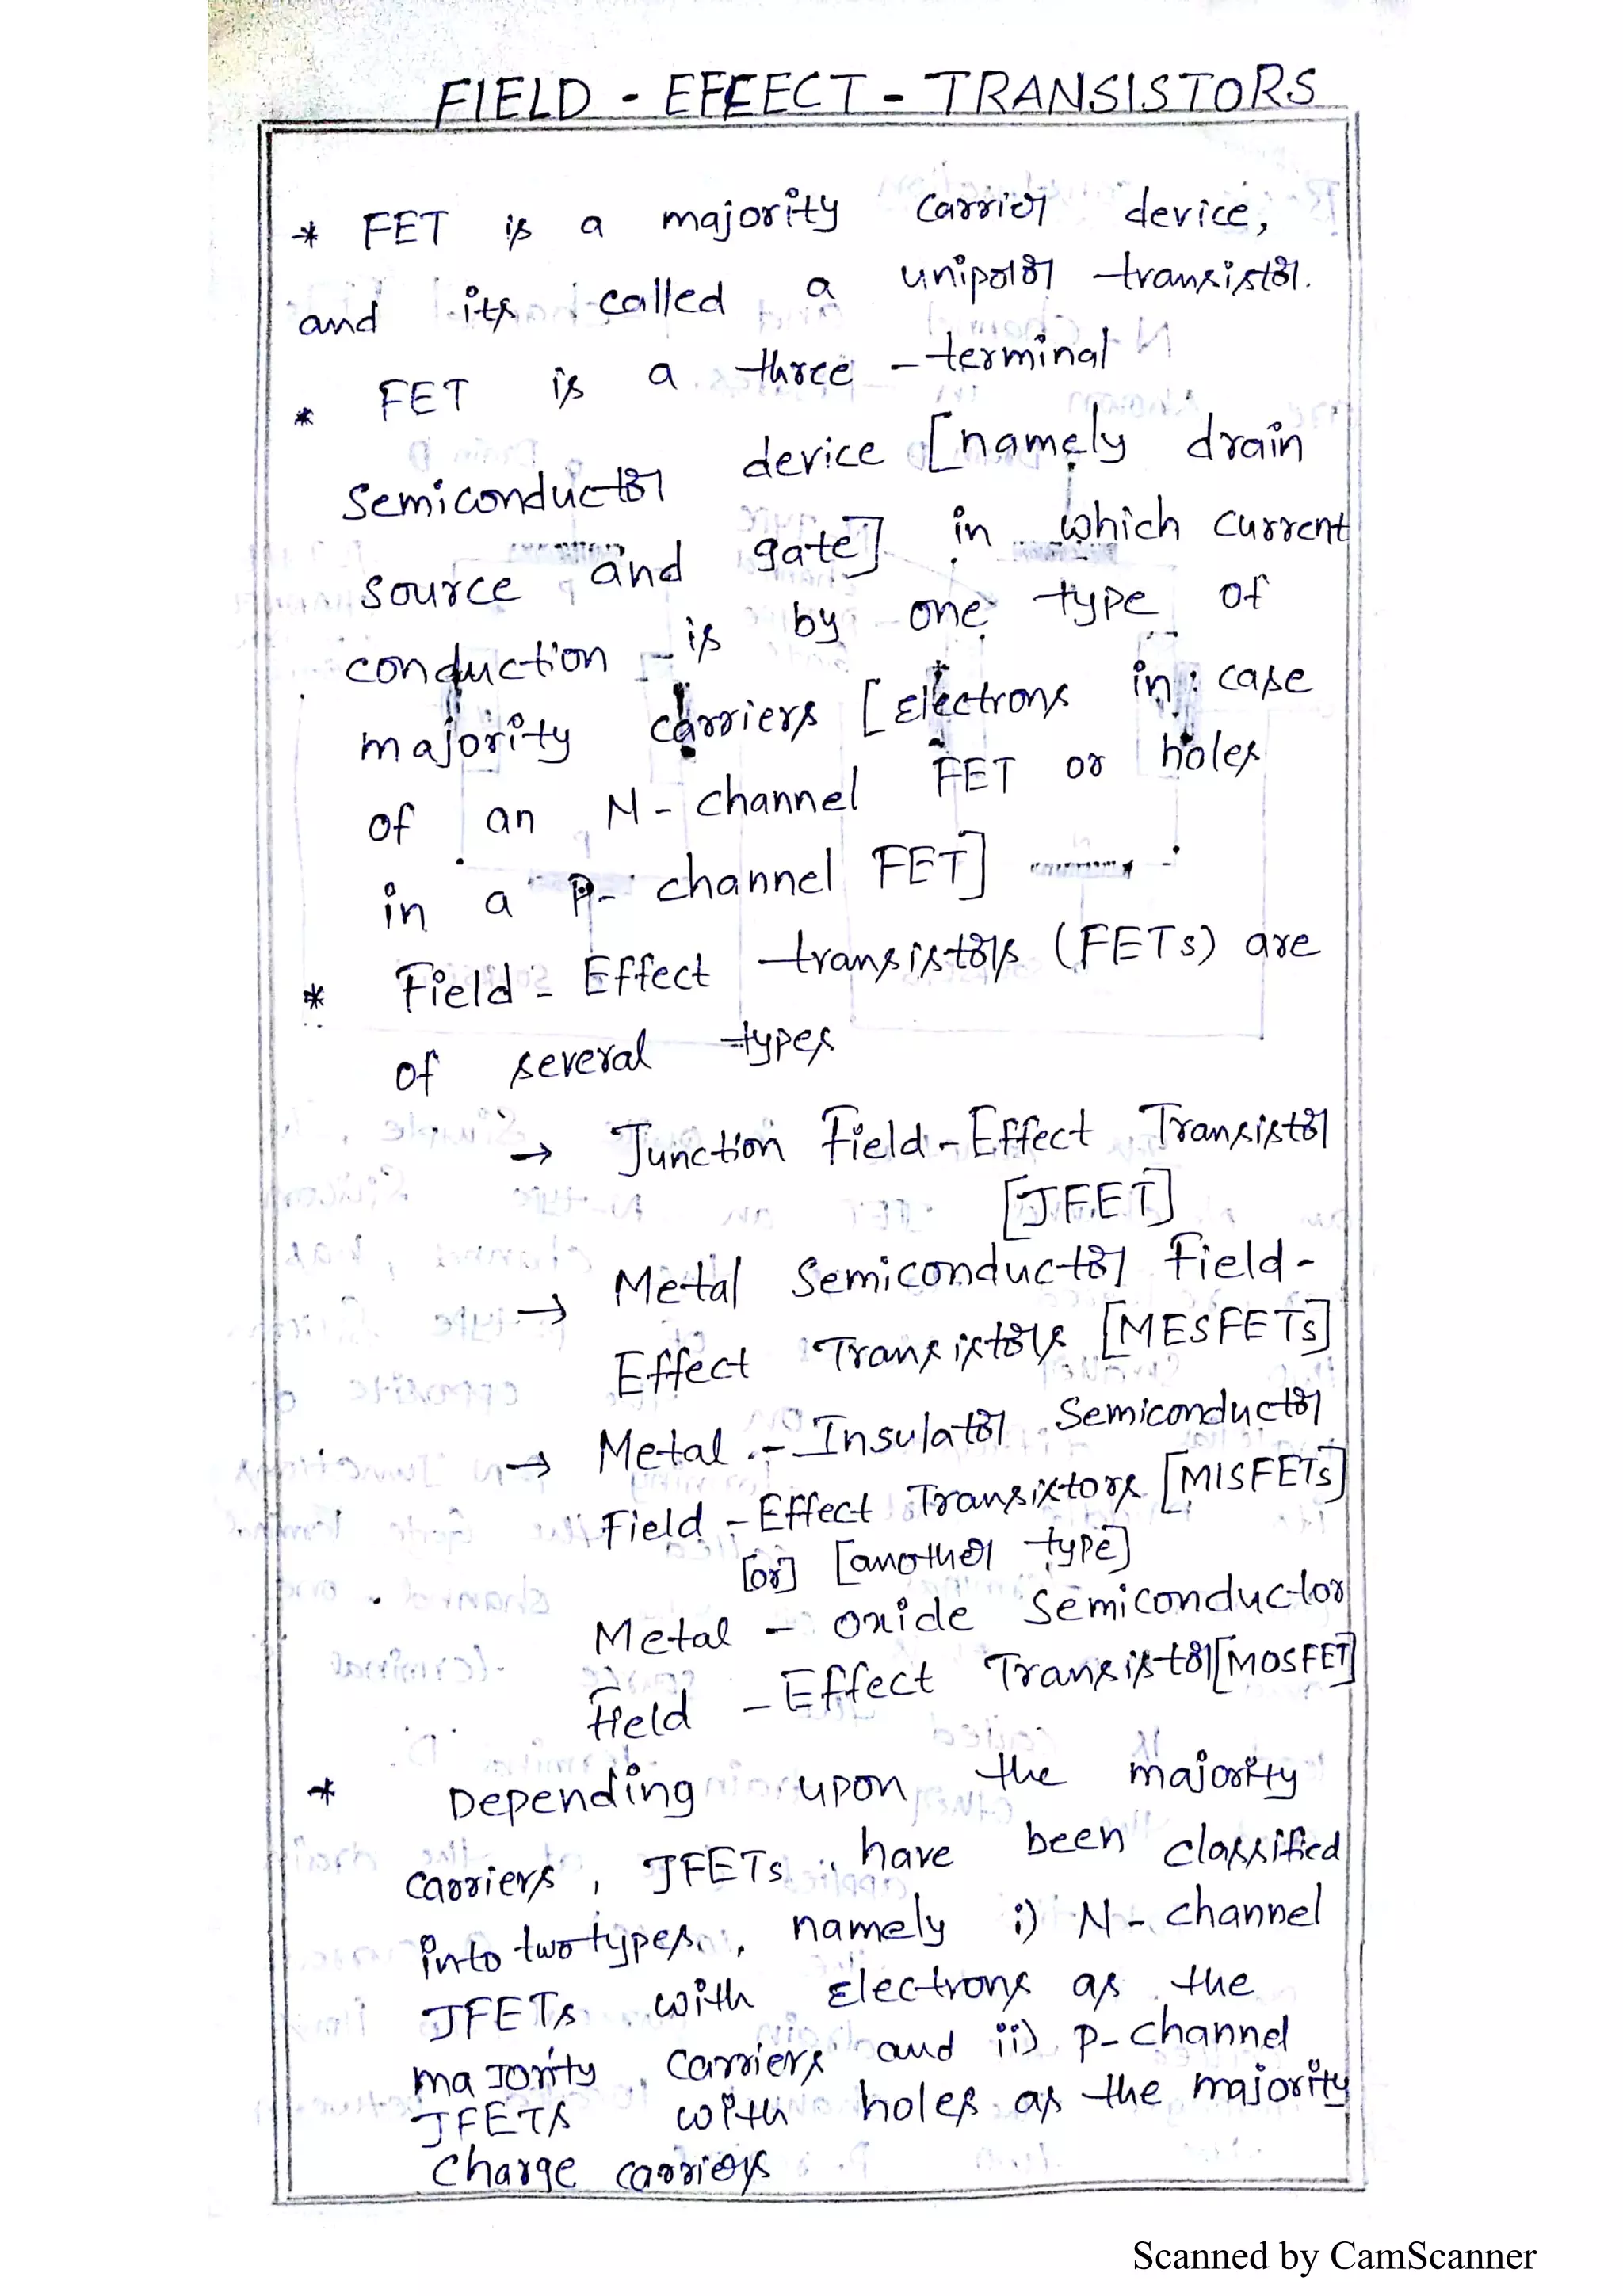 FIELD - EFFECT - TRANSISTORS
* FET is a majority carrier device,
and its called a unipolar transistor.
* FET is a three - terminal
Semiconductor device [namely drain
source and gate] in which current
conduction is by one type of
majority carriers [Electrons in case
of an N - channel FET or holes
in a P- channel FET]
* Field - Effect transistors (FETs) are
of several types
→ Junction Field - Effect Transistor
[JFET]
→ Metal Semiconductor Field -
Effect Transistors [MESFETs]
→ Metal - Insulator Semiconductor
Field - Effect Transistors [MISFETs]
[or] [another type]
Metal - oxide Semiconductor
Field - Effect Transistor [MOSFET]
* Depending upon the majority
carriers, JFETs have been classified
into two types, namely i) N - channel
JFETs with Electrons as the
maJority carriers and ii) P- channel
JFETs with holes as the majority
Charge carriers
Scanned by CamScanner